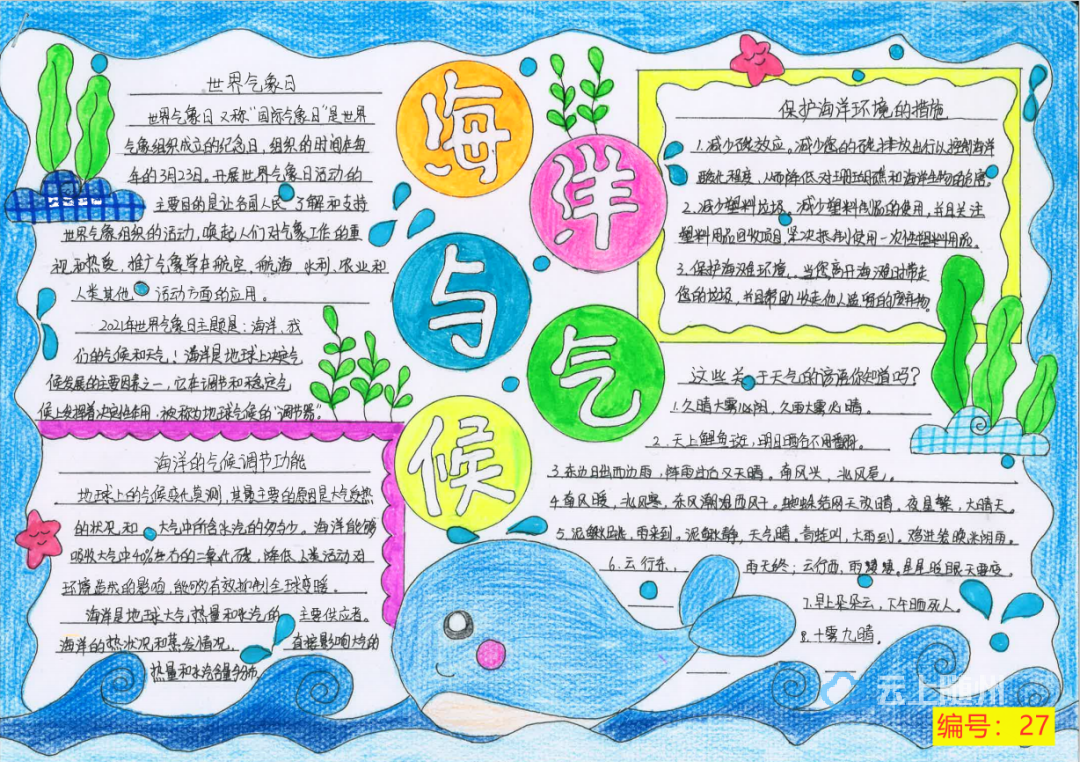 世界气象日
世界气象日又称"国际气象日"是世界
气象组织成立的纪念日，组织的时间在每
年的3月23日。开展世界气象日活动的
主要目的是让各国人民 了解和支持
世界气象组织的活动，唤起人们对气象工作的重
视和热爱，推广气象学在航空、航海、水利、农业和
人类其他 活动方面的应用。
2021年世界气象日主题是：海洋、我
们的气候和天气！海洋是地球上决定气
候发展的主要因素之一，它在调节和稳定气
候上发挥着决定性作用，被称为地球气候的"调节器"。
海洋的气候调节功能
地球上的气候变化莫测，其最主要的原因是大气受热
的状况和 大气中所含水汽的多少。海洋能够
吸收大气中40%左右的二氧化碳，降低人类活动对
环境造成的影响，能够有效抑制全球变暖。
海洋是地球大气热量和水汽的 主要供应者。
海洋的热状况和蒸发情况， 直接影响大气的
热量和水汽含量与分布。
海
洋
与
气
候
保护海洋环境的措施
1.减少碳效应。减少您的碳排放出行以控制海洋
酸化程度，从而降低对珊瑚礁和海洋生物的危害。
2.减少塑料垃圾，减少塑料制品的使用，并且关注
塑料用品回收项目，坚决抵制使用一次性塑料用品。
3.保护海滩环境。当您离开海滩时带走
您的垃圾，并且帮助收走他人 的废弃物。
这些关于天气的谚语你知道吗？
1.久晴大雾必阴，久雨大雾必晴。
2.天上鲤鱼斑，明日晒谷不用翻。
3.东边日出西边雨，阵雨过后又天晴。南风头，北风尾。
4.南风暖，北风寒，东风潮湿西风干。蜘蛛结网天放晴，夜星繁，大晴天。
5.泥鳅跳，雨来到。泥鳅静，天气晴。青蛙叫，大雨到。鸡进笼晚兆阴雨。
6.云行东， 雨天终；云行西，雨凄凄。星星眨眼天要变。
7.早上朵朵云，下午晒死人。
8.十雾九晴。
云上随州
编号：27